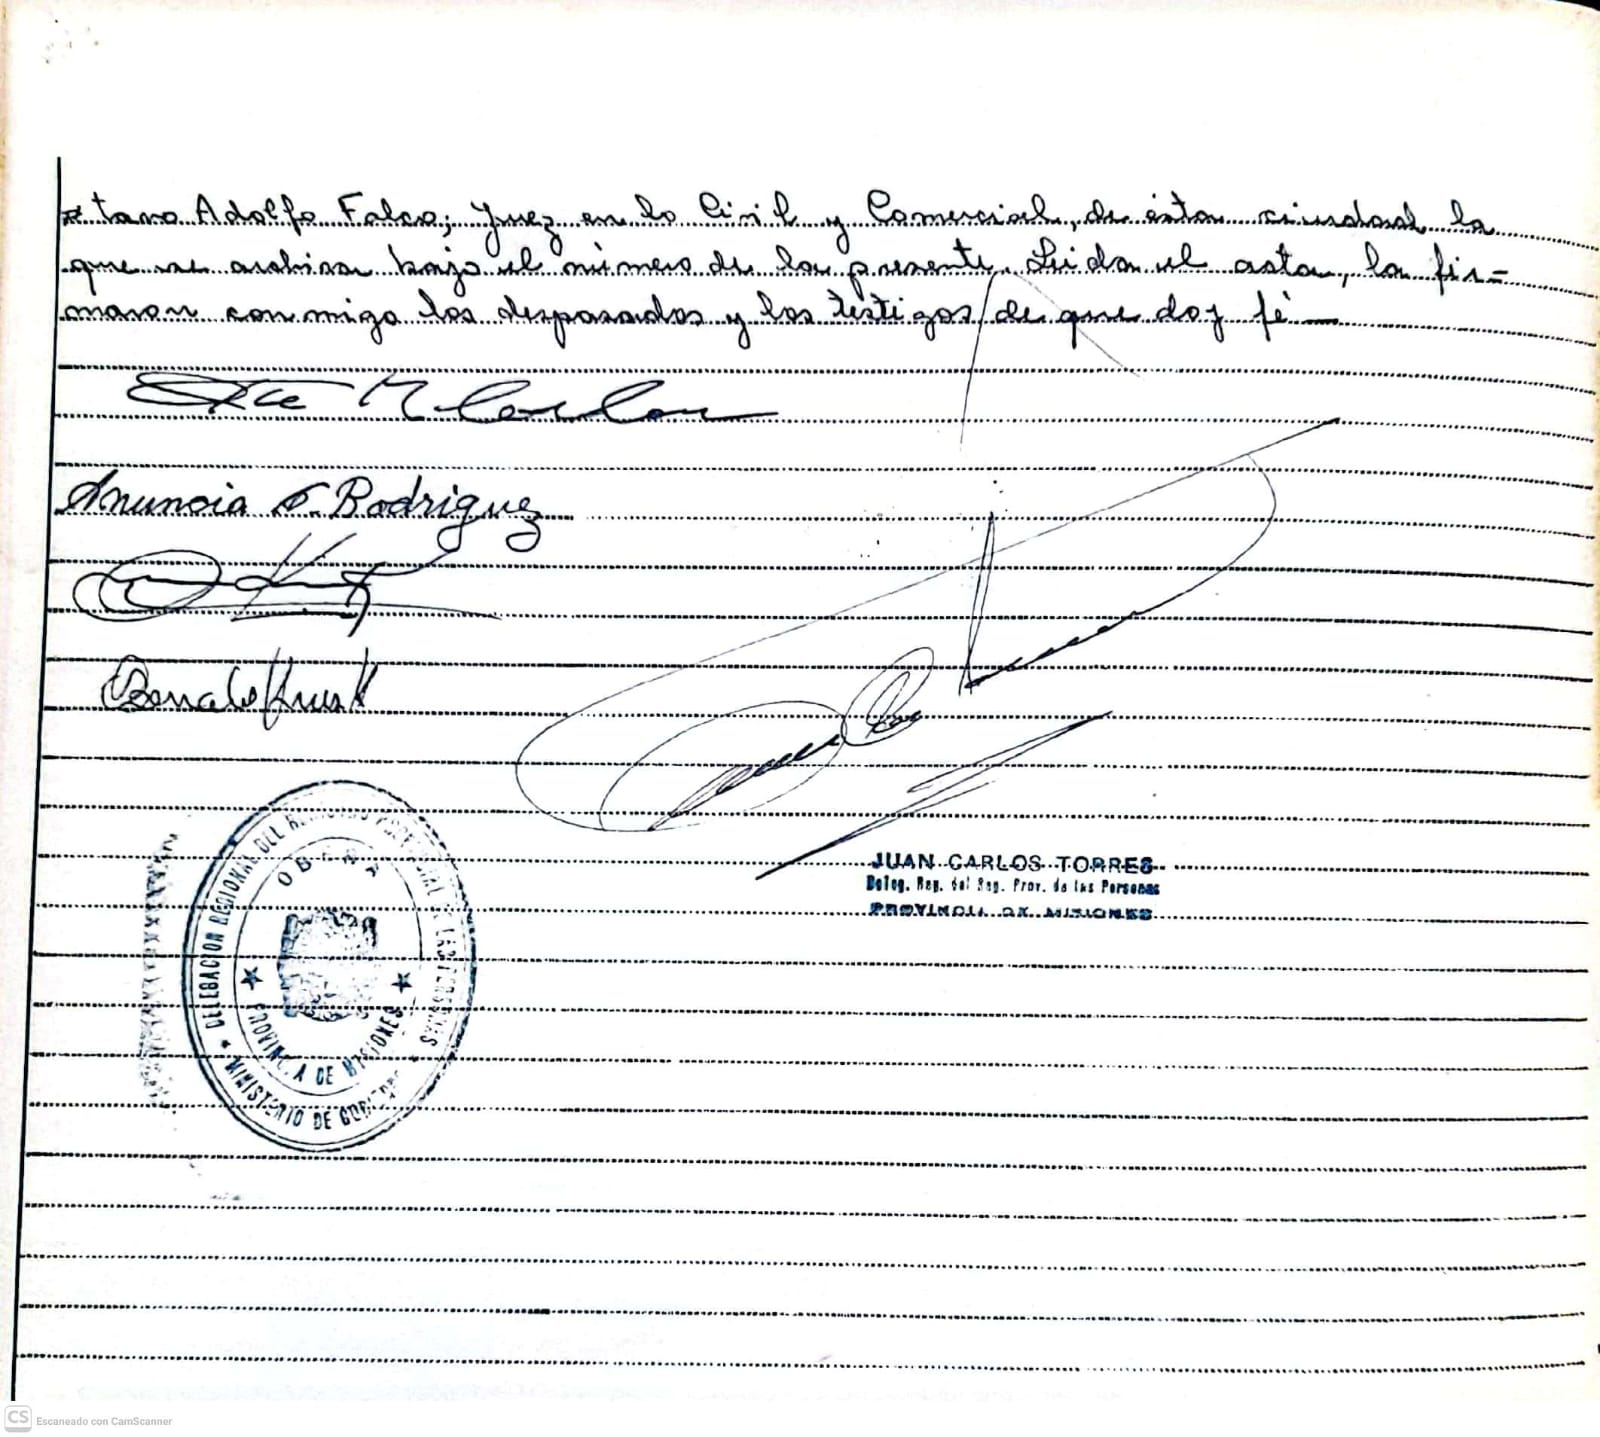 tano Adolfo Falco; Juez en lo Civil y Comercial, de ésta ciudad la
que se archiva bajo el número de la presente. Leida el acta, la fir=
maron conmigo los desposados y los testigos de que doy fé —
Anuncia F. Rodriguez
JUAN CARLOS TORRES
Deleg. Reg. del Reg. Prov. de las Personas
PROVINCIA DE MISIONES
DELEGACION REGIONAL DEL REGISTRO PROVINCIAL DE LAS PERSONAS
OBERA
PROVINCIA DE MISIONES
MINISTERIO DE GOBIERNO
CS Escaneado con CamScanner